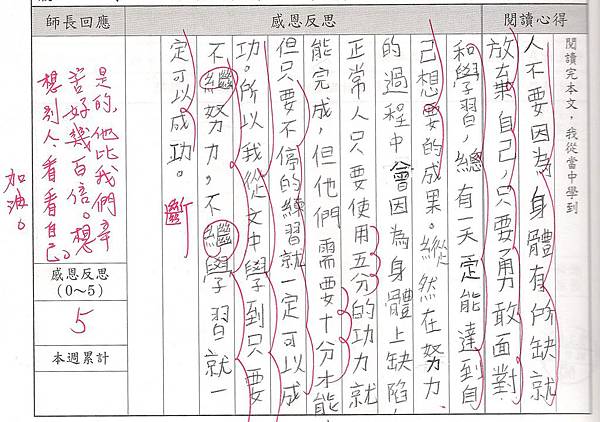 閱讀心得
感恩反思
師長回應
閱讀完本文，我從當中學到
人不要因為身體有所缺就
放棄自己，只要勇敢面對
和學習，總有一天定能達到自
己想要的成果。縱然在努力
的過程中會因為身體上缺陷，
正常人只要使用五分的功力就
能完成，但他們需要十分才能，
但只要不停的練習就一定可以成
功。所以我從文中學到只要
不繼努力，不繼學習就一
定可以成功。
斷
是的，他比我們辛
苦好幾百倍。想
想別人，看看自己。
加油。
感恩反思
(0～5)
5
本週累計